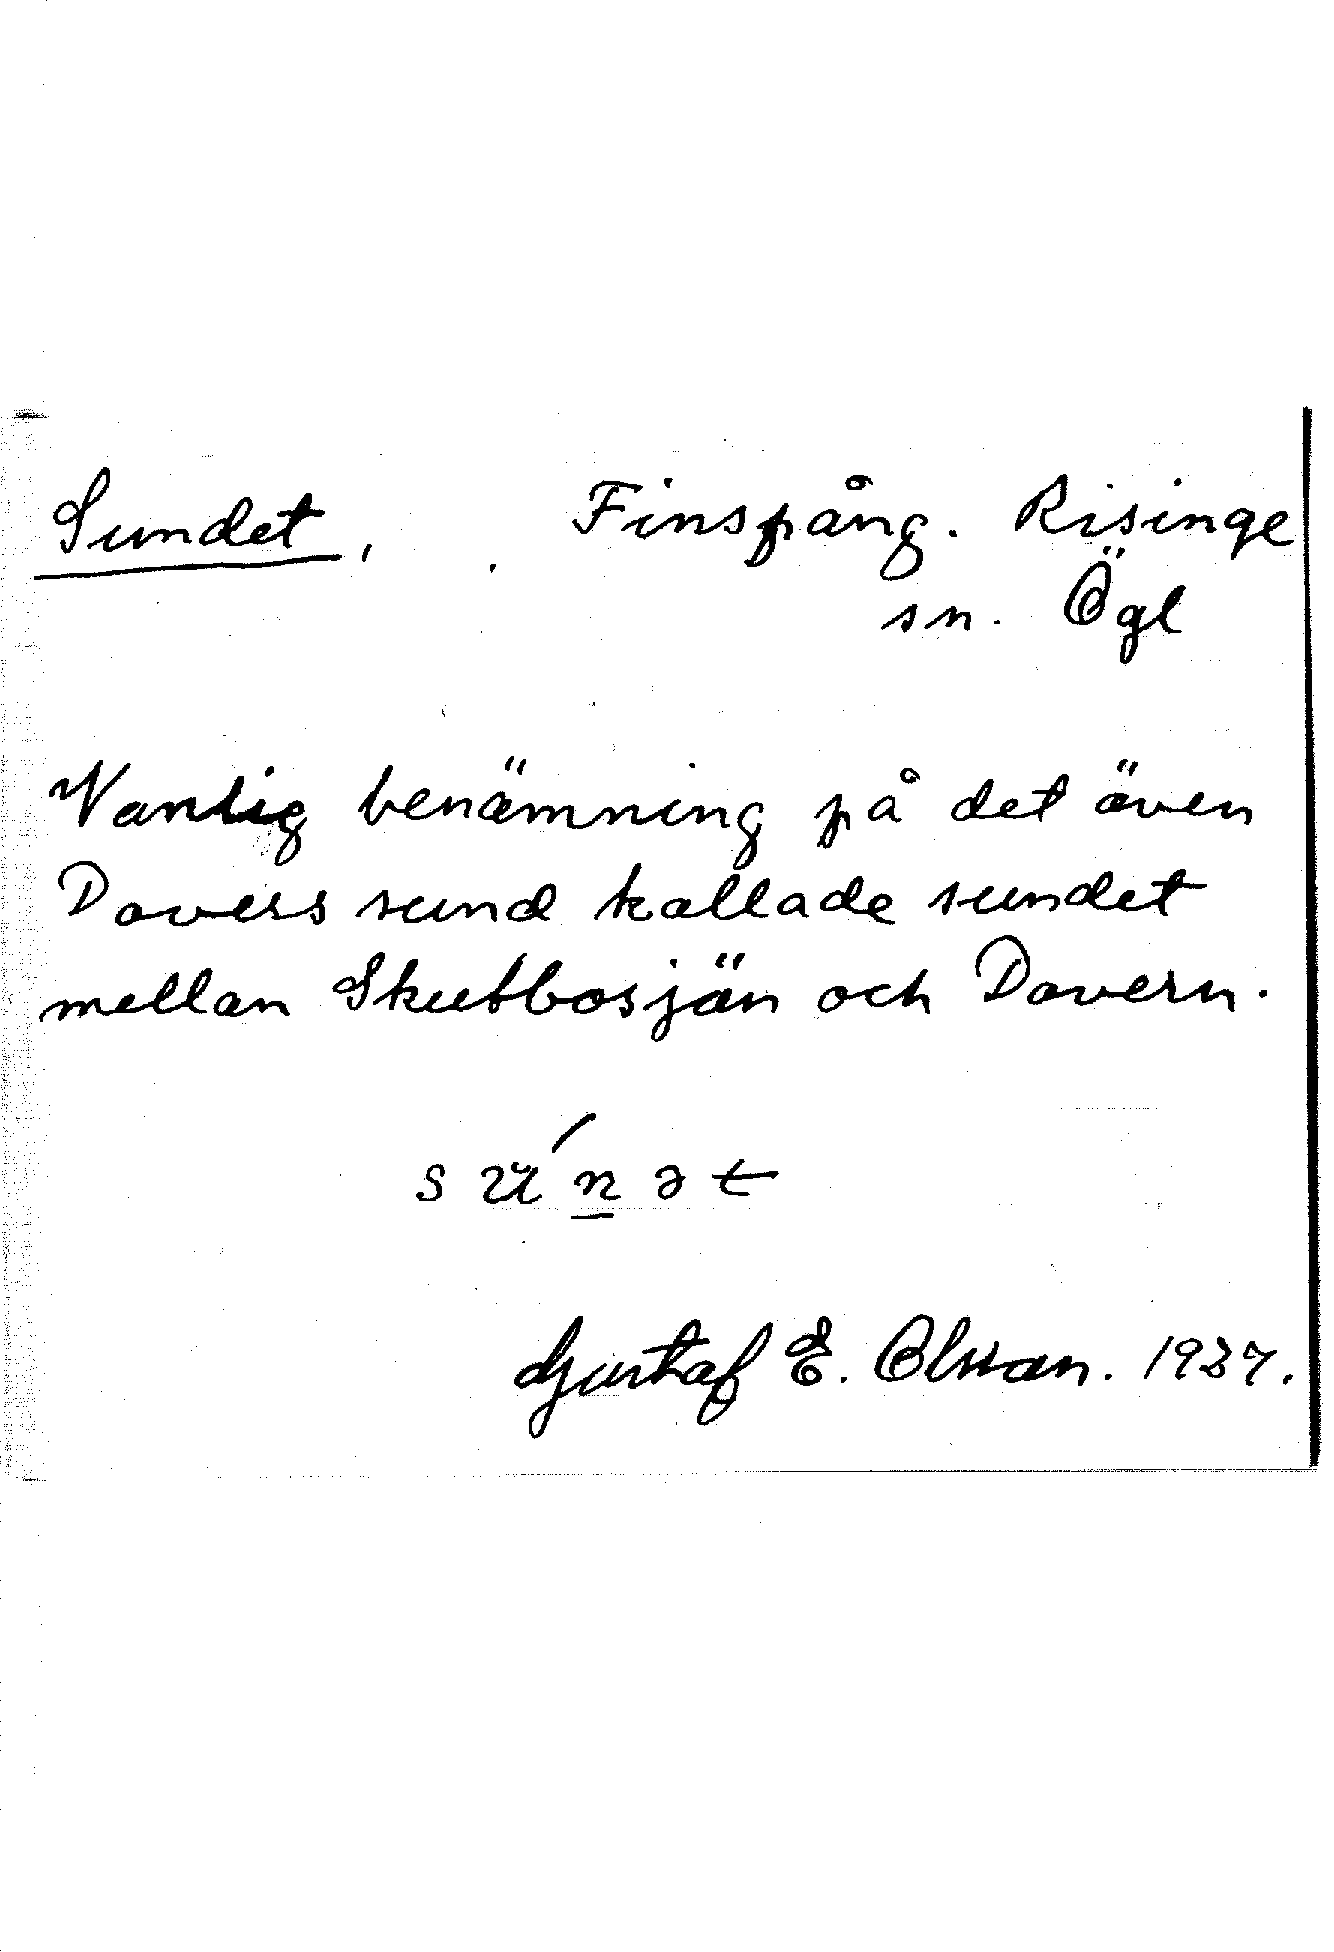 Sundet, Finspång. Risinge
sn. Ögl
Vanlig benämning på det även
Davers sund kallade sundet
mellan Skutbosjön och Davern.
su´n̲ət
Gustaf E. Olsson. 1937.